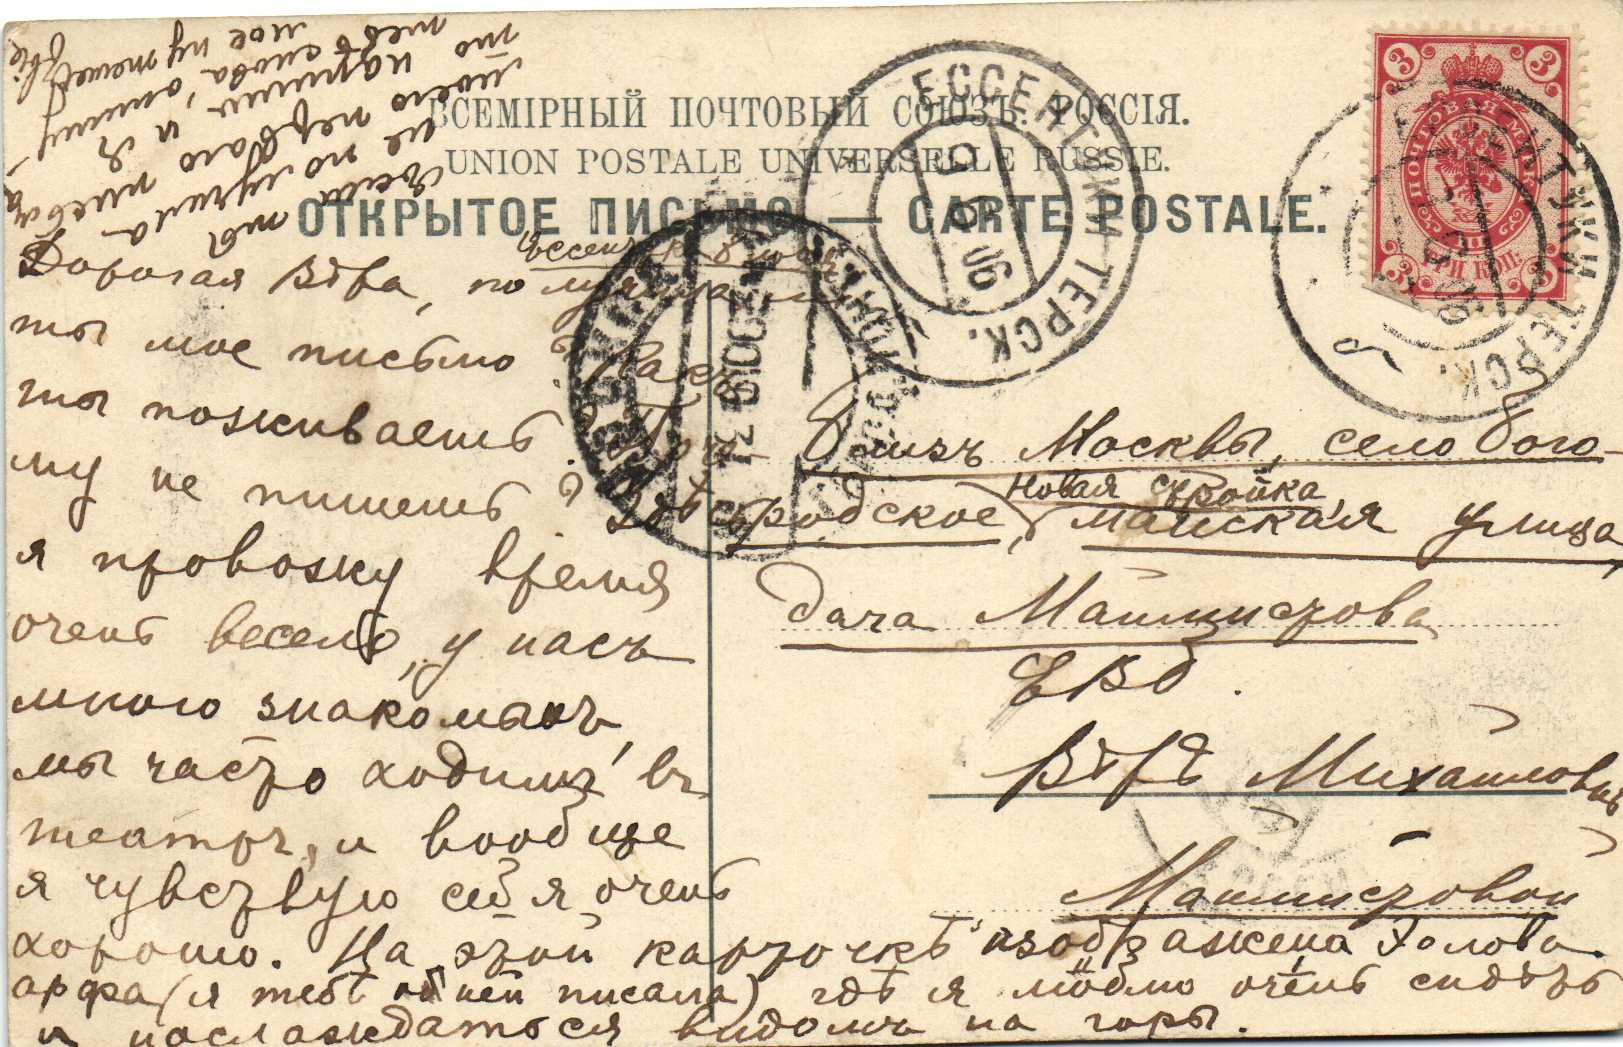 ВСЕМІРНЫЙ ПОЧТОВЫЙ СОЮЗЪ. РОССІЯ.
UNION POSTALE UNIVERSELLE RUSSIE.
ОТКРЫТОЕ ПИСЬМО — CARTE POSTALE.
ЕССЕНТУКИ ТЕРСК.
9 6 06
ЕССЕНТУКИ ТЕРСК.
3 3
ПОЧТОВАЯ МАРКА
ТРИ КОП.
3 3
Ессентуки 8 июня
Дорогая Вѣра, получила ли
ты мое письмо? Какъ
ты поживаешь? Поче-
му не пишешь? Здѣсь
я провожу время
очень весело, у насъ
много знакомыхъ,
мы часто ходимъ въ
театръ, и вообще
я чувствую себя очень
хорошо. На этой карточкѣ изображена Эолова
арфа (я тебѣ об ней писала), гдѣ я люблю очень сидѣть
и наслаждаться видомъ на горы.
Если ты
не получила
моего перваго письма,
то напиши, и я
тебѣ снова опишу
мое путешествіе
Близъ Москвы, село Бого-
родское, Новая стройка
майская улица,
дача Машистрова
ЕВБ.
Вѣрѣ Михайловнѣ
Машистровой